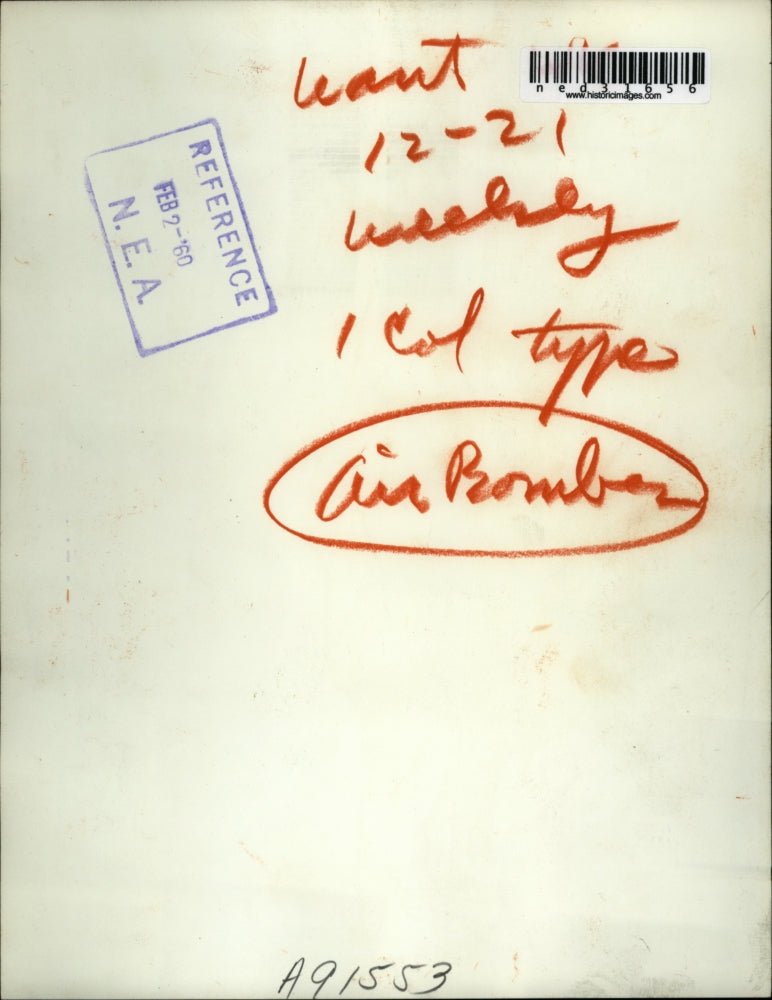 want
ned31656
www.historicimages.com
12-21
weekly
1 Col type
Air Bomber
REFERENCE
FEB 2-'60
N. E. A.
A91553